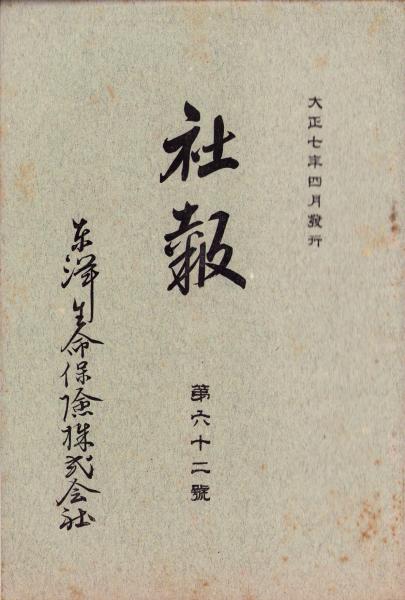 大正七年四月發行
社報
第六十二號
東洋生命保險株式会社